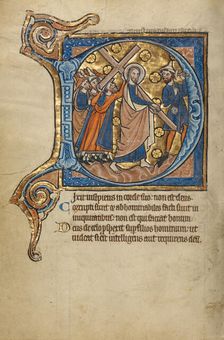 Dixit insipiens in corde suo: non est deus.
Corrupti sunt et abhominabiles facti sunt in
iniquitatibus: non est qui faciat bonum.
Deus de celo prospexit sup filios hominum: ut
uideat si est intelligens aut requirens deum.